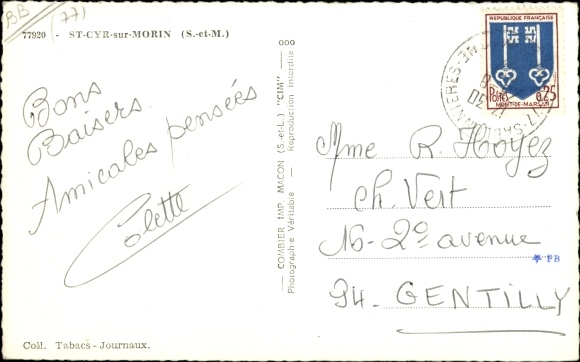 BB (77)
77920 - ST-CYR-sur-MORIN (S.-et-M.)
Bons
Baisers.
Amicales pensées
Colette
Coll. Tabacs - Journaux.
COMBIER IMP. MACON (S.-et-L.) "CIM"
Photographie Véritable - Reproduction interdite
REPUBLIQUE FRANÇAISE
POSTES 0,25
MONT-DE-MARSAN
Mme R. Hoyez
Ch. Vert
16 - 2e avenue
PB
94. GENTILLY